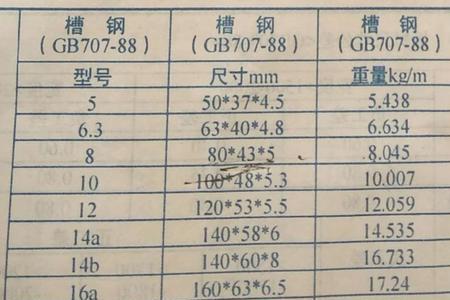 槽钢 槽钢 槽钢
(GB707-88) (GB707-88) (GB707-88)
型号 尺寸mm 重量kg/m
5 50*37*4.5 5.438
6.3 63*40*4.8 6.634
8 80*43*5 8.045
10 100*48*5.3 10.007
12 120*53*5.5 12.059
14a 140*58*6 14.535
14b 140*60*8 16.733
16a 160*63*6.5 17.24